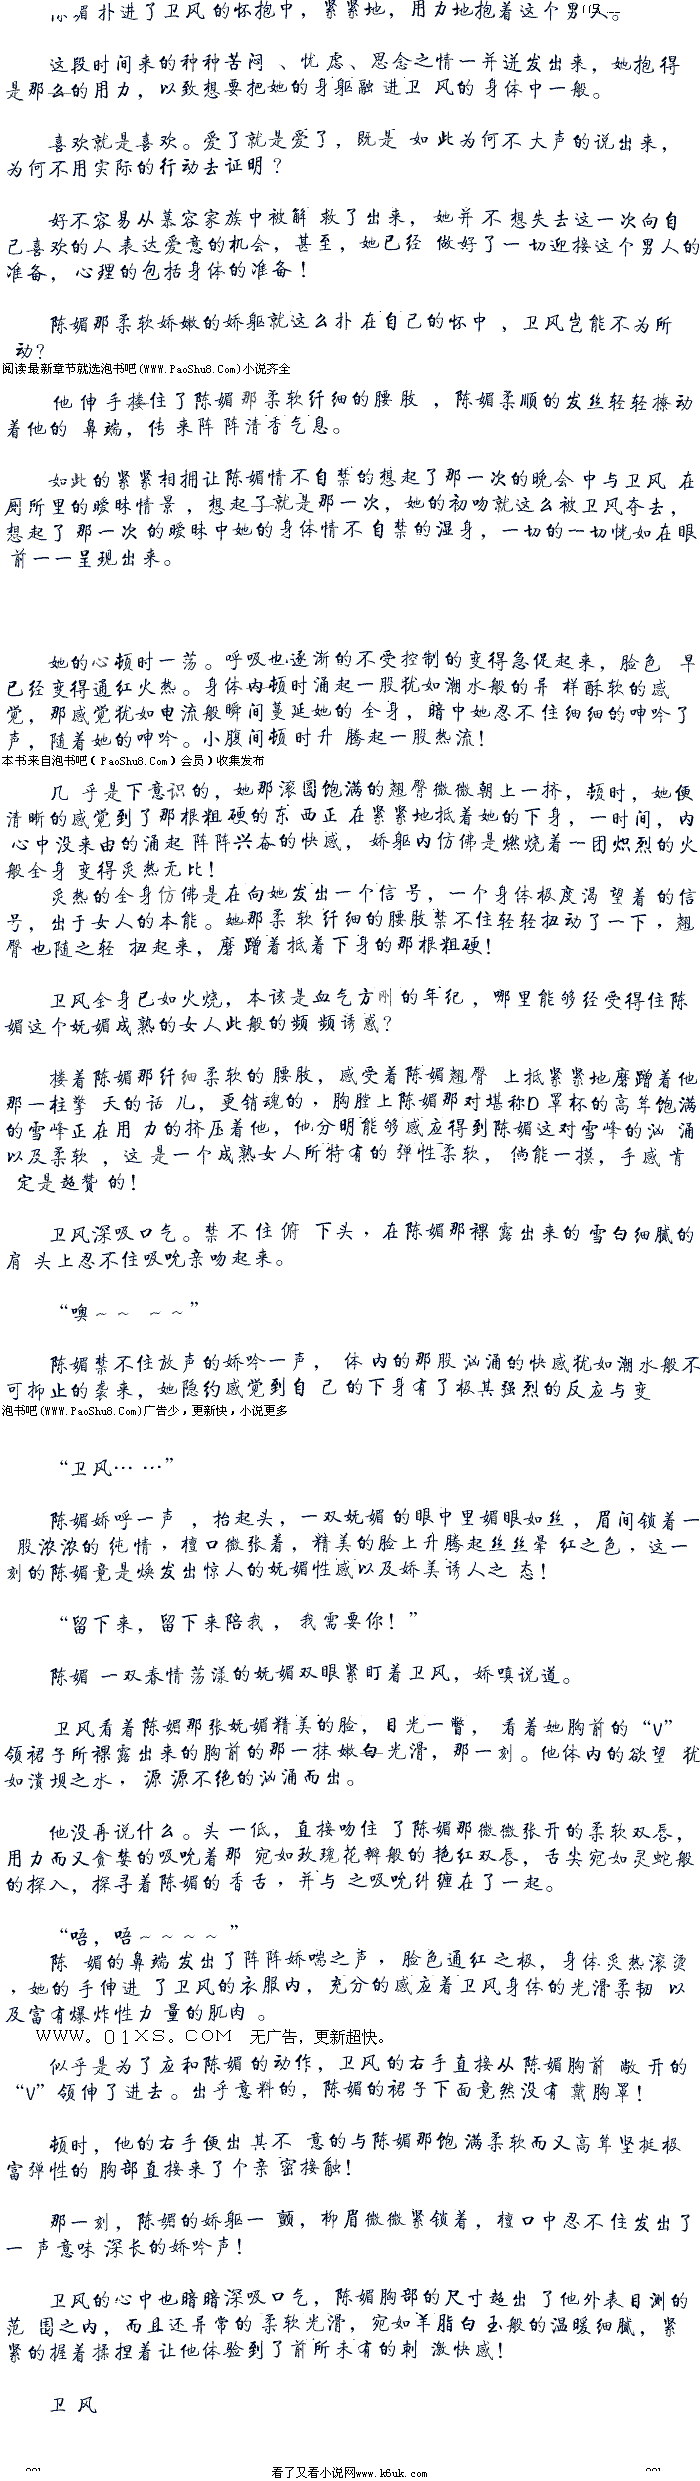 陈媚扑进了卫风的怀抱中，紧紧地，用力地抱着这个男人。
这段时间来的种种苦闷、忧虑、思念之情一并迸发出来，她抱得
是那么的用力，以致想要把她的身躯融进卫风的身体中一般。
喜欢就是喜欢。爱了就是爱了，既是如此为何不大声的说出来，
为何不用实际的行动去证明？
好不容易从慕容家族中被解救了出来，她并不想失去这一次向自
己喜欢的人表达爱意的机会，甚至，她已经做好了一切迎接这个男人的
准备，心理的包括身体的准备！
陈媚那柔软娇嫩的娇躯就这么扑在自己的怀中，卫风岂能不为所
动？
阅读最新章节就选泡书吧(WWW.PaoShu8.Com)小说齐全
他伸手搂住了陈媚那柔软纤细的腰肢，陈媚柔顺的发丝轻轻撩动
着他的鼻端，传来阵阵清香气息。
如此的紧紧相拥让陈媚情不自禁的想起了那一次的晚会中与卫风在
厕所里的暧昧情景，想起了就是那一次，她的初吻就这么被卫风夺去，
想起了那一次的暧昧中她的身体情不自禁的湿身，一切的一切恍如在眼
前一一呈现出来。
她的心顿时一荡。呼吸也逐渐的不受控制的变得急促起来，脸色早
已经变得通红火热。身体内顿时涌起一股犹如潮水般的异样酥软的感
觉，那感觉犹如电流般瞬间蔓延她的全身，暗中她忍不住细细的呻吟了
声，随着她的呻吟。小腹间顿时升腾起一股热流！
本书来自泡书吧(PaoShu8.Com)会员)收集发布
几乎是下意识的，她那滚圆饱满的翘臀微微朝上一挤，顿时，她便
清晰的感觉到了那根粗硬的东西正在紧紧地抵着她的下身，一时间，内
心中没来由的涌起阵阵兴奋的快感，娇躯内仿佛是燃烧着一团炽烈的火
般全身变得炙热无比！
炙热的全身仿佛是在向她发出一个信号，一个身体极度渴望着的信
号，出于女人的本能。她那柔软纤细的腰肢禁不住轻轻扭动了一下，翘
臀也随之轻扭起来，磨蹭着抵着下身的那根粗硬！
卫风全身已如火烧，本该是血气方刚的年纪，哪里能够经受得住陈
媚这个妩媚成熟的女人此般的频频诱惑？
搂着陈媚那纤细柔软的腰肢，感受着陈媚翘臀上抵紧紧地磨蹭着他
那一柱擎天的话儿，更销魂的，胸膛上陈媚那对堪称D罩杯的高耸饱满
的雪峰正在用力的挤压着他，他分明能够感应得到陈媚这对雪峰的汹涌
以及柔软，这是一个成熟女人所特有的弹性柔软，倘能一摸，手感肯
定是超赞的！
卫风深吸口气。禁不住俯下头，在陈媚那裸露出来的雪白细腻的
肩头上忍不住吸吮亲吻起来。
“噢～～ ～～”
陈媚禁不住放声的娇吟一声，体内的那股汹涌的快感犹如潮水般不
可抑止的袭来，她隐约感觉到自己的下身有了极其强烈的反应与变
泡书吧(WWW.PaoShu8.Com)广告少，更新快，小说更多
“卫风… …”
陈媚娇呼一声，抬起头，一双妩媚的眼中里媚眼如丝，眉间锁着一
股浓浓的纯情，檀口微张着，精美的脸上升腾起丝丝晕红之色，这一
刻的陈媚竟是焕发出惊人的妩媚性感以及娇美诱人之态！
“留下来，留下来陪我，我需要你！”
陈媚一双春情荡漾的妩媚双眼紧盯着卫风，娇嗔说道。
卫风看着陈媚那张妩媚精美的脸，目光一瞥，看着她胸前的“V”
领裙子所裸露出来的胸前的那一抹嫩白光滑，那一刻。他体内的欲望犹
如溃坝之水，源源不绝的汹涌而出。
他没再说什么。头一低，直接吻住了陈媚那微微张开的柔软双唇，
用力而又贪婪的吸吮着那宛如玫瑰花瓣般的艳红双唇，舌尖宛如灵蛇般
的探入，探寻着陈媚的香舌，并与之吸吮纠缠在了一起。
“唔，唔～～～～”
陈媚的鼻端发出了阵阵娇喘之声，脸色通红之极，身体炙热滚烫
，她的手伸进了卫风的衣服内，充分的感应着卫风身体的光滑柔韧以
及富有爆炸性力量的肌肉。
WWW。01XS。COM 无广告，更新超快。
似乎是为了应和陈媚的动作，卫风的右手直接从陈媚胸前敞开的
“V”领伸了进去。出乎意料的，陈媚的裙子下面竟然没有戴胸罩！
顿时，他的右手便出其不意的与陈媚那饱满柔软而又高耸坚挺极
富弹性的胸部直接来了个亲密接触！
那一刻，陈媚的娇躯一颤，柳眉微微紧锁着，檀口中忍不住发出了
一声意味深长的娇吟声！
卫风的心中也暗暗深吸口气，陈媚胸部的尺寸超出了他外表目测的
范围之内，而且还异常的柔软光滑，宛如羊脂白玉般的温暖细腻，紧
紧的握着揉捏着让他体验到了前所未有的刺激快感！
卫风
看了又看小说网www.k6uk.com